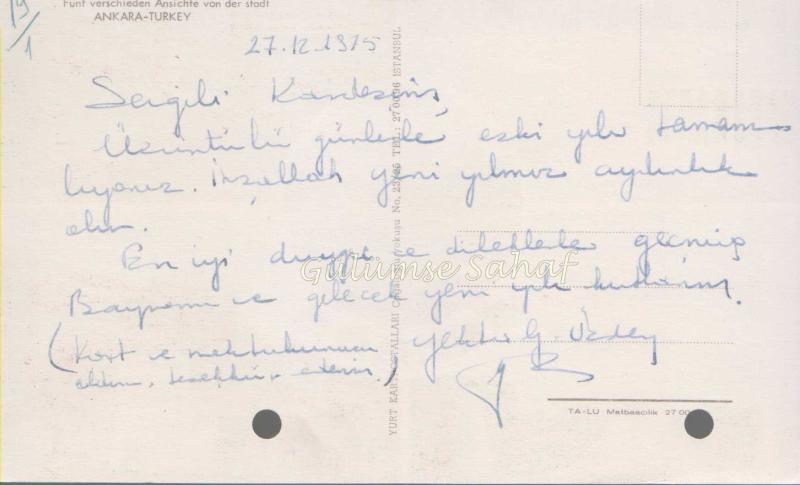 19/1
Fünf verschieden Ansichte von der stadt
ANKARA-TURKEY
27.12.1975
Sevgili Kardeşim,
Üzüntülü günlerle eski yılı tamam-
lıyoruz. İnşallah yeni yılımız aydınlık
olur.
En iyi duygu ve dileklerle geçmiş
Bayramı ve gelecek yeni yılı kutlarım.
(Kart ve mektubunuzu
aldım, teşekkür ederim.)
Yekta G. Özden
Gülümse Sahaf
YURT KARTPOSTALLARI yokuşu No. 23/25 TEL.: 27 00 96 ISTANBUL
TA-LU Matbaacilik 27 00